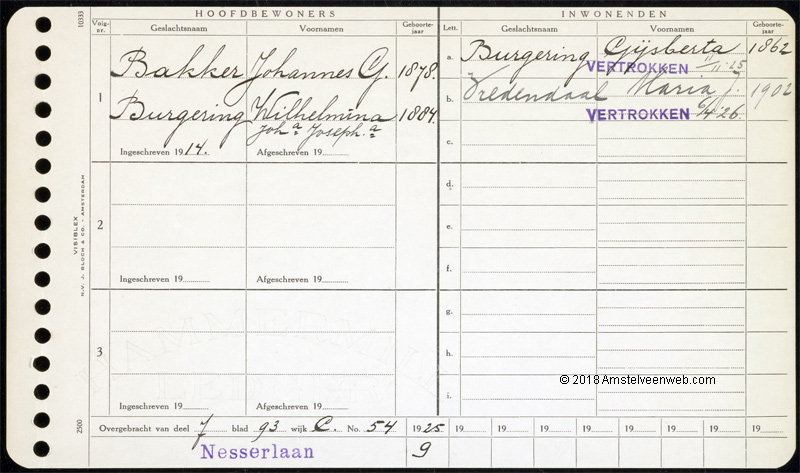 10333
HOOFDBEWONERS
Volg-nr. Geslachtsnaam Voornamen Geboorte-jaar
1
Bakker Johannes G. 1878.
Burgering Wilhelmina 1884.
Joh.a Joseph.a
Ingeschreven 1914. Afgeschreven 19
2
Ingeschreven 19 Afgeschreven 19
3
Ingeschreven 19 Afgeschreven 19
INWONENDEN
Lett. Geslachtsnaam Voornamen Geboorte-jaar
a. Burgering Gijsberta 1862
VERTROKKEN 11/11'25
b. Vredendaal Maria J. 1902
VERTROKKEN 6/4'26
c.
d.
e.
f.
g.
h.
i.
© 2018 Amstelveenweb.com
VISIBLEX
N.V. J. BLOCH & CO. - AMSTERDAM
2500
Overgebracht van deel 7 blad 93 wijk C. No. 54 1925. 19 19 19 19 19 19 19
Nesserlaan 9